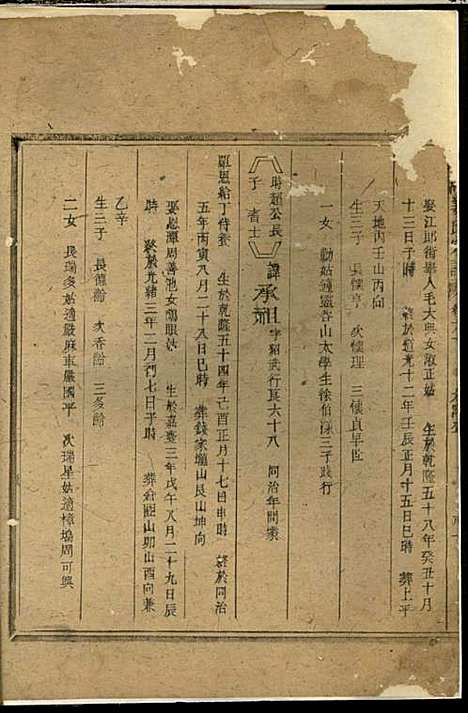 娶江郎街舉人毛大興女淑正姑 生於乾隆五十八年癸丑十月
十三日子時 終於道光十二年壬辰正月十五日巳時 葬上平
天地丙壬山丙向
生三子 長懷亨 次懷理 三懷貞早世
一女 勤姑適靈谷山太學生徐伯 三子踐行
時趨公長子 耆士 諱承祖 字紹武行良六十八 同治年間蒙
羅恩給丁侍養 生於乾隆五十四年己酉正月十七日申時 終於同治
五年丙寅八月二十八日巳時 葬錢家壠山艮山坤向
娶恩潭周善池女蘭眼姑 生於嘉慶三年戊午八月二十九日辰
時 終於光緒三年二月初七日子時 葬 山卯山酉向兼
乙辛
生三子 長德齡 次香齡 三多齡
二女 長瑞多姑適嚴麻車嚴國平 次瑞星姑適樟塢周可興